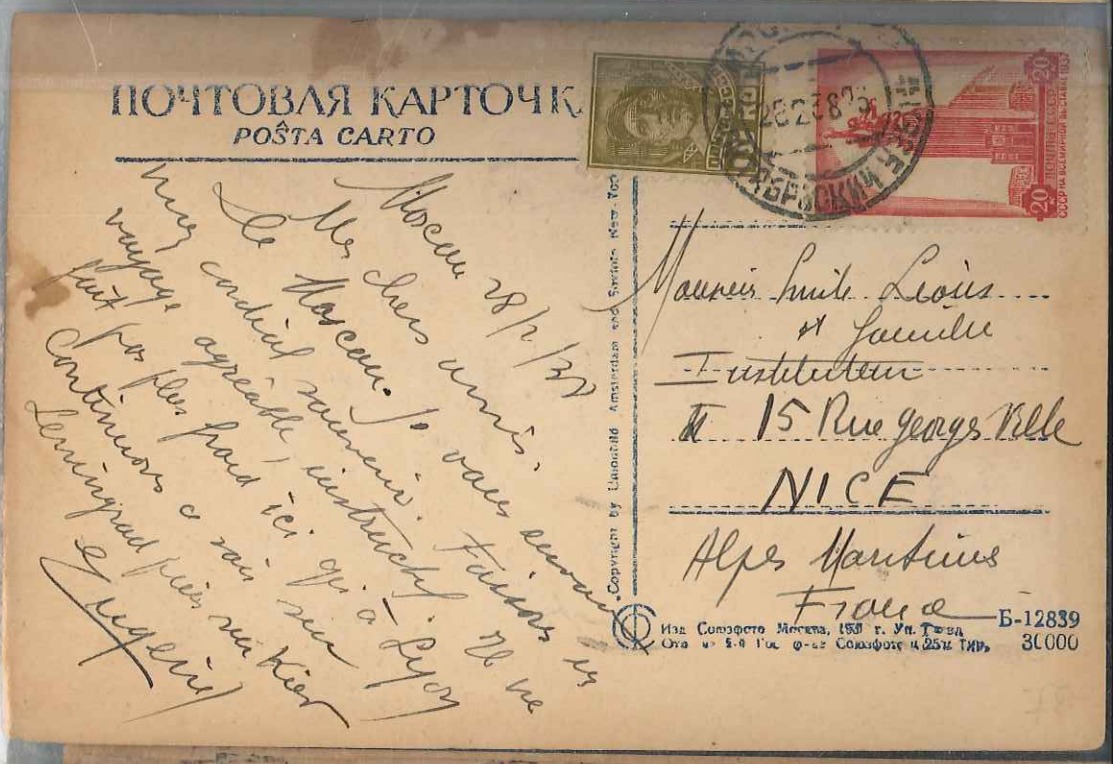 ПОЧТОВАЯ КАРТОЧК
POŜTA CARTO
Moscou 28/2/38
Mes chers amis.
De Moscou. Je vous envoie
un cordial souvenir. Faisons un
voyage agréable, instructif. Il ne
fait pas plus froid ici qu'à Lyon
Continuons ce soir sur
Leningrad puis Kiev
Copyright by Unionbild Amsterdam and Sovfoto New-York
28 2 38
20
20
СССР НА ВСЕМИРНОЙ ВЫСТАВКЕ 1937
Monsieur Emile Léoüs
et famille
Instituteur
15 Rue Georges Ville
NICE
Alpes Maritimes
France
Б-12839
Изд Союзфото Москва, 193 г. Ул.
Союзфото 25 тип.
30000